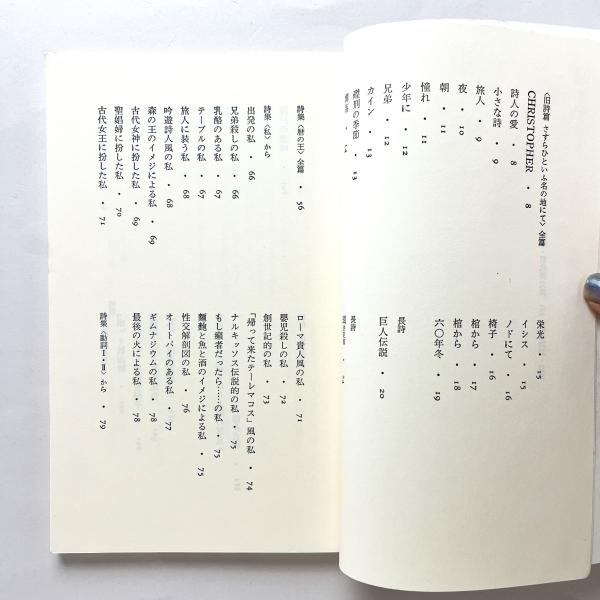 〈旧詩篇 さすらひといふ名の地にて〉全篇
CHRISTOPHER ・ 8
詩人の愛 ・ 8
小さな詩 ・ 9
旅人 ・ 9
夜 ・ 10
朝 ・ 11
憧れ ・ 11
少年に ・ 12
兄弟 ・ 12
カイン ・ 13
磔刑の季節 ・ 13
栄光 ・ 15
イシス ・ 15
ノドにて ・ 16
椅子 ・ 16
棺から ・ 17
棺から ・ 18
六〇年冬 ・ 19
長詩
巨人伝説 ・ 20
長詩
詩集〈暦の王〉全篇 ・ 56
詩集〈私〉から
出発の私 ・ 66
兄弟殺しの私 ・ 66
乳酪のある私 ・ 67
テーブルの私 ・ 67
旅人に装う私 ・ 68
吟遊詩人風の私 ・ 68
森の王のイメジによる私 ・ 69
古代女神に扮した私 ・ 69
聖娼婦に扮した私 ・ 70
古代女王に扮した私 ・ 71
ローマ貴人風の私 ・ 71
嬰児殺しの私 ・ 72
創世記的の私 ・ 73
「帰って来たテーレマコス」風の私 ・ 74
ナルキッソス伝説的の私 ・ 75
もし癩者だったら……の私 ・ 75
麵麭と魚と酒のイメジによる私 ・ 75
性交解剖図の私 ・ 76
オートバイのある私 ・ 77
ギムナジウムの私 ・ 78
最後の火による私 ・ 78
詩集〈動詞Ⅰ・Ⅱ〉から ・ 79